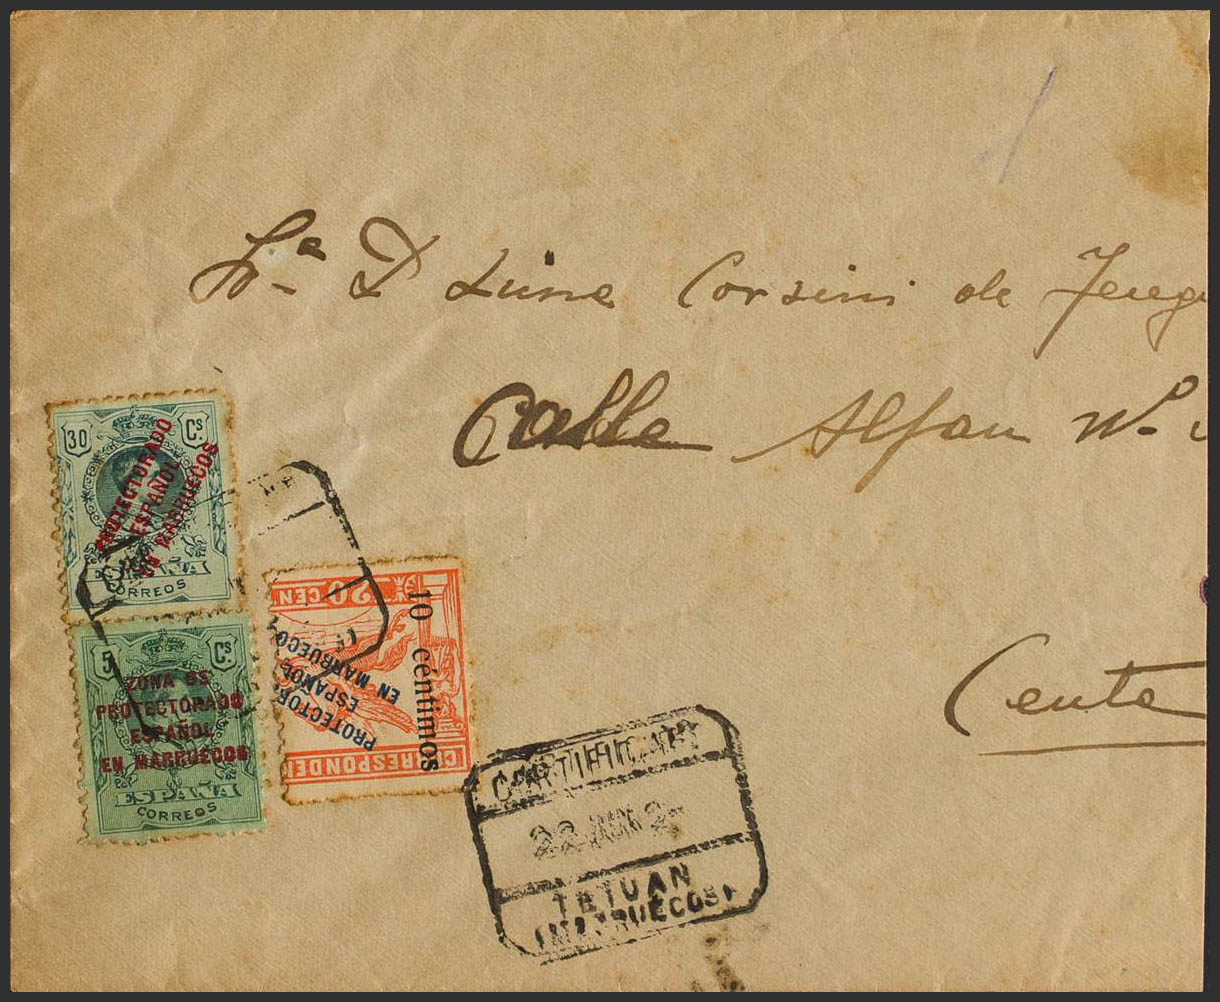 Sra. D Luine Corsini de
Calle Alfau Nº
Ceuta
30 Cs.
PROTECTORADO
ESPAÑOL
EN MARRUECOS
ESPAÑA
CORREOS
5 Cs.
ZONA DE
PROTECTORADO
ESPAÑOL
EN MARRUECOS
ESPAÑA
CORREOS
20 CEN
10 céntimos
PROTECTOR
ESPAÑOL
EN MARRUECO
CORRESPONDEN
CERTIFICADO
22 JUN 2
TETUAN
(MARRUECOS)